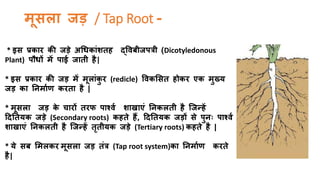 मूसला जड़ / Tap Root -
* इस प्रकार की जड़े अधिकांशतह द्विबीजपत्री (Dicotyledonous
Plant) पौधों में पाई जाती है|
* इस प्रकार की जड़ में मूलांकुर (redicle) विकसित होकर एक मुख्य
जड़ का निर्माण करता है |
* मूसला जड़ के चारों तरफ पार्श्व शाखाएं निकलती है जिन्हें
दितियक जड़े (Secondary roots) कहते हैं, दितियक जड़ों से पुनः पार्श्व
शाखाएं निकलती है जिन्हें तृतीयक जड़े (Tertiary roots) कहते है |
* ये सब मिलकर मूसला जड़ तंत्र (Tap root system)का निर्माण करते
है|